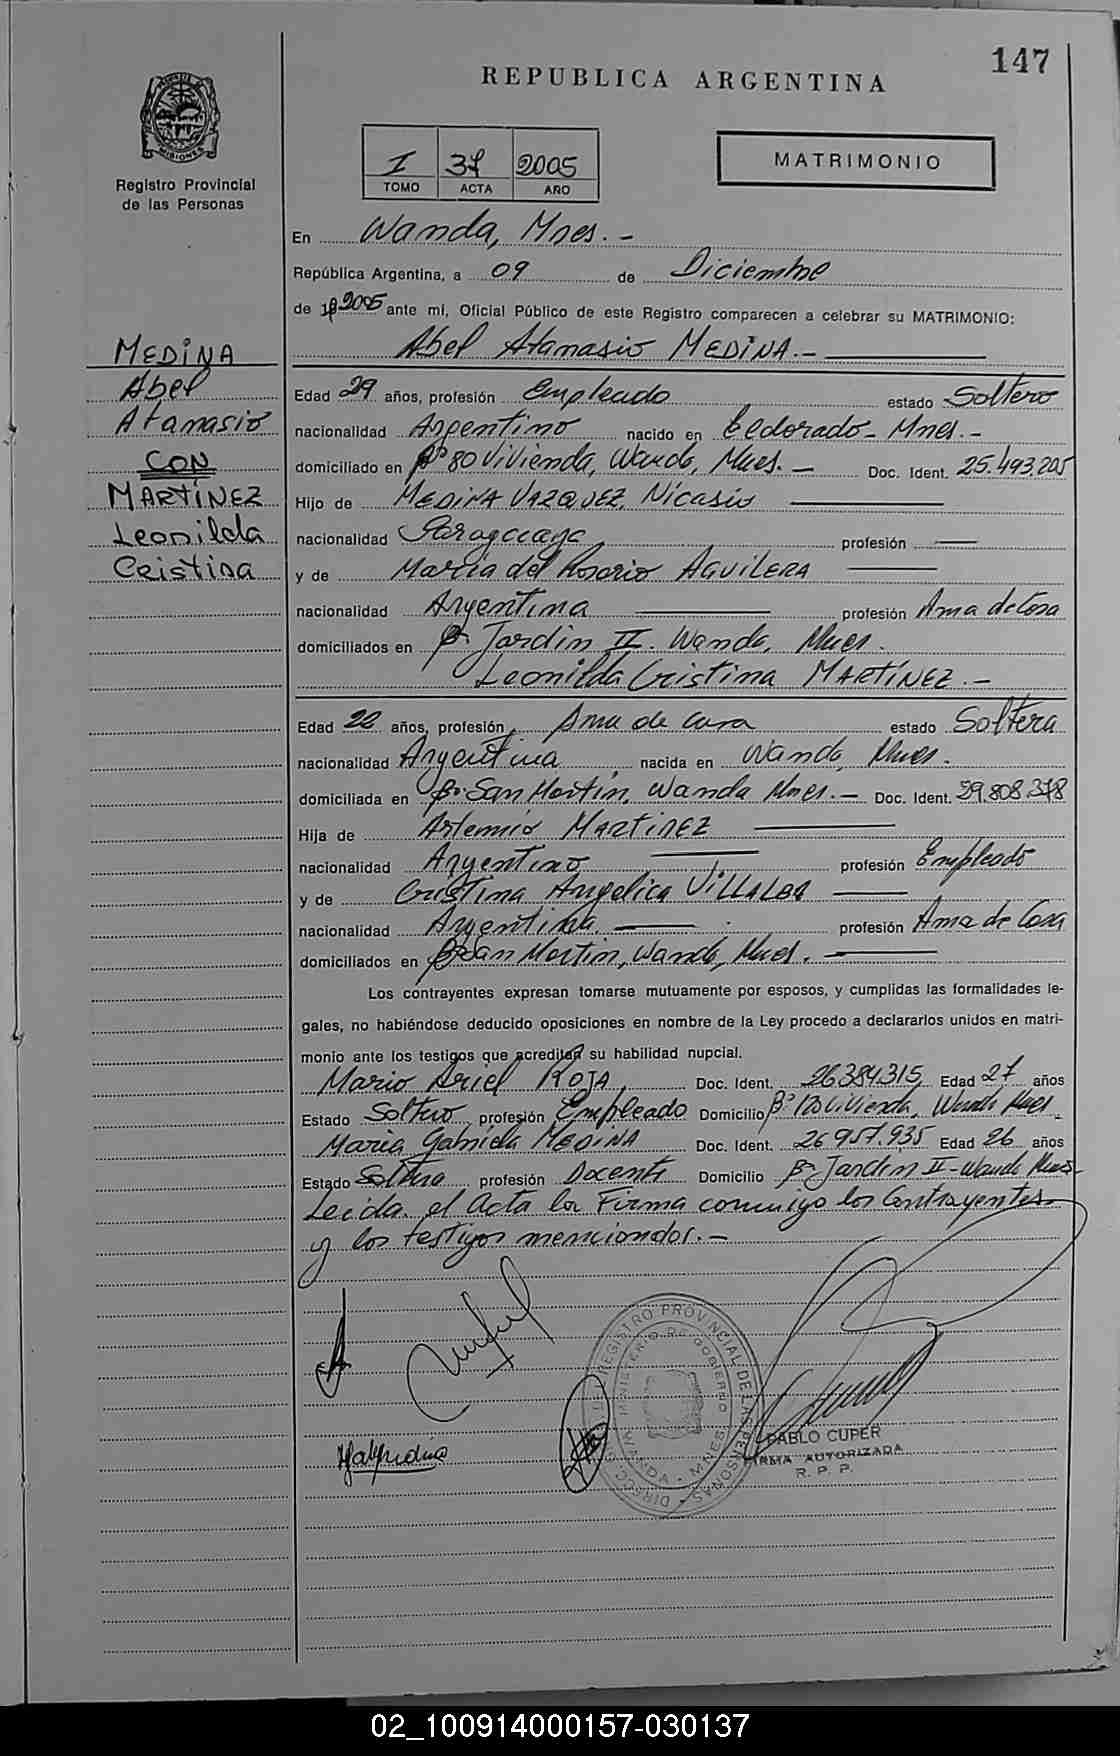 147
REPUBLICA ARGENTINA
MISIONES
Registro Provincial
de las Personas
I 37 2005
TOMO ACTA AÑO
MATRIMONIO
En Wanda, Mnes. -
República Argentina, a 09 de Diciembre
de 19 2005 ante mi, Oficial Público de este Registro comparecen a celebrar su MATRIMONIO:
Abel Atanasio MEDINA. -
MEDINA
Abel
Atanasio
CON
MARTÍNEZ
Leonilda
Cristina
Edad 29 años, profesión Empleado estado Soltero
nacionalidad Argentino nacido en Eldorado - Mnes. -
domiciliado en Bº 80 Vivienda, Wanda, Mnes. - Doc. Ident. 25.493.205
Hijo de MEDINA VAZQUEZ, Nicasio
nacionalidad Paraguaya profesión —
y de María del Rosario AGUILERA
nacionalidad Argentina profesión Ama de Casa
domiciliados en Bº Jardin II. Wanda, Mnes.
Leonilda Cristina MARTÍNEZ. -
Edad 22 años, profesión Ama de casa estado Soltera
nacionalidad Argentina, nacida en Wanda, Mnes.
domiciliada en Bº San Martin, Wanda Mnes. - Doc. Ident. 29.808.378
Hija de Artemio MARTINEZ
nacionalidad Argentino profesión Empleado
y de Cristina Angelica VILLALBA
nacionalidad Argentina profesión Ama de Casa
domiciliados en Bº San Martin, Wanda, Mnes.
Los contrayentes expresan tomarse mutuamente por esposos, y cumplidas las formalidades le-
gales, no habiéndose deducido oposiciones en nombre de la Ley procedo a declararlos unidos en matri-
monio ante los testigos que acreditan su habilidad nupcial.
Mario Ariel ROJA, Doc. Ident. 26384315, Edad 27 años
Estado Soltero profesión Empleado Domicilio Bº 120 Vivienda, Wanda Mnes
Maria Gabriela MEDINA Doc. Ident. 26957.935 Edad 26 años
Estado Soltera profesión Docente Domicilio Bº Jardin II - Wanda Mnes -
Leida el Acta la Firma conmigo los Contrayentes
y los testigos mencionados. -
REGISTRO PROVINCIAL DE LAS PERSONAS
MINISTERIO DE GOBIERNO
WANDA - MNES
PABLO CUPER
FIRMA AUTORIZADA
R. P. P.
02_100914000157-030137